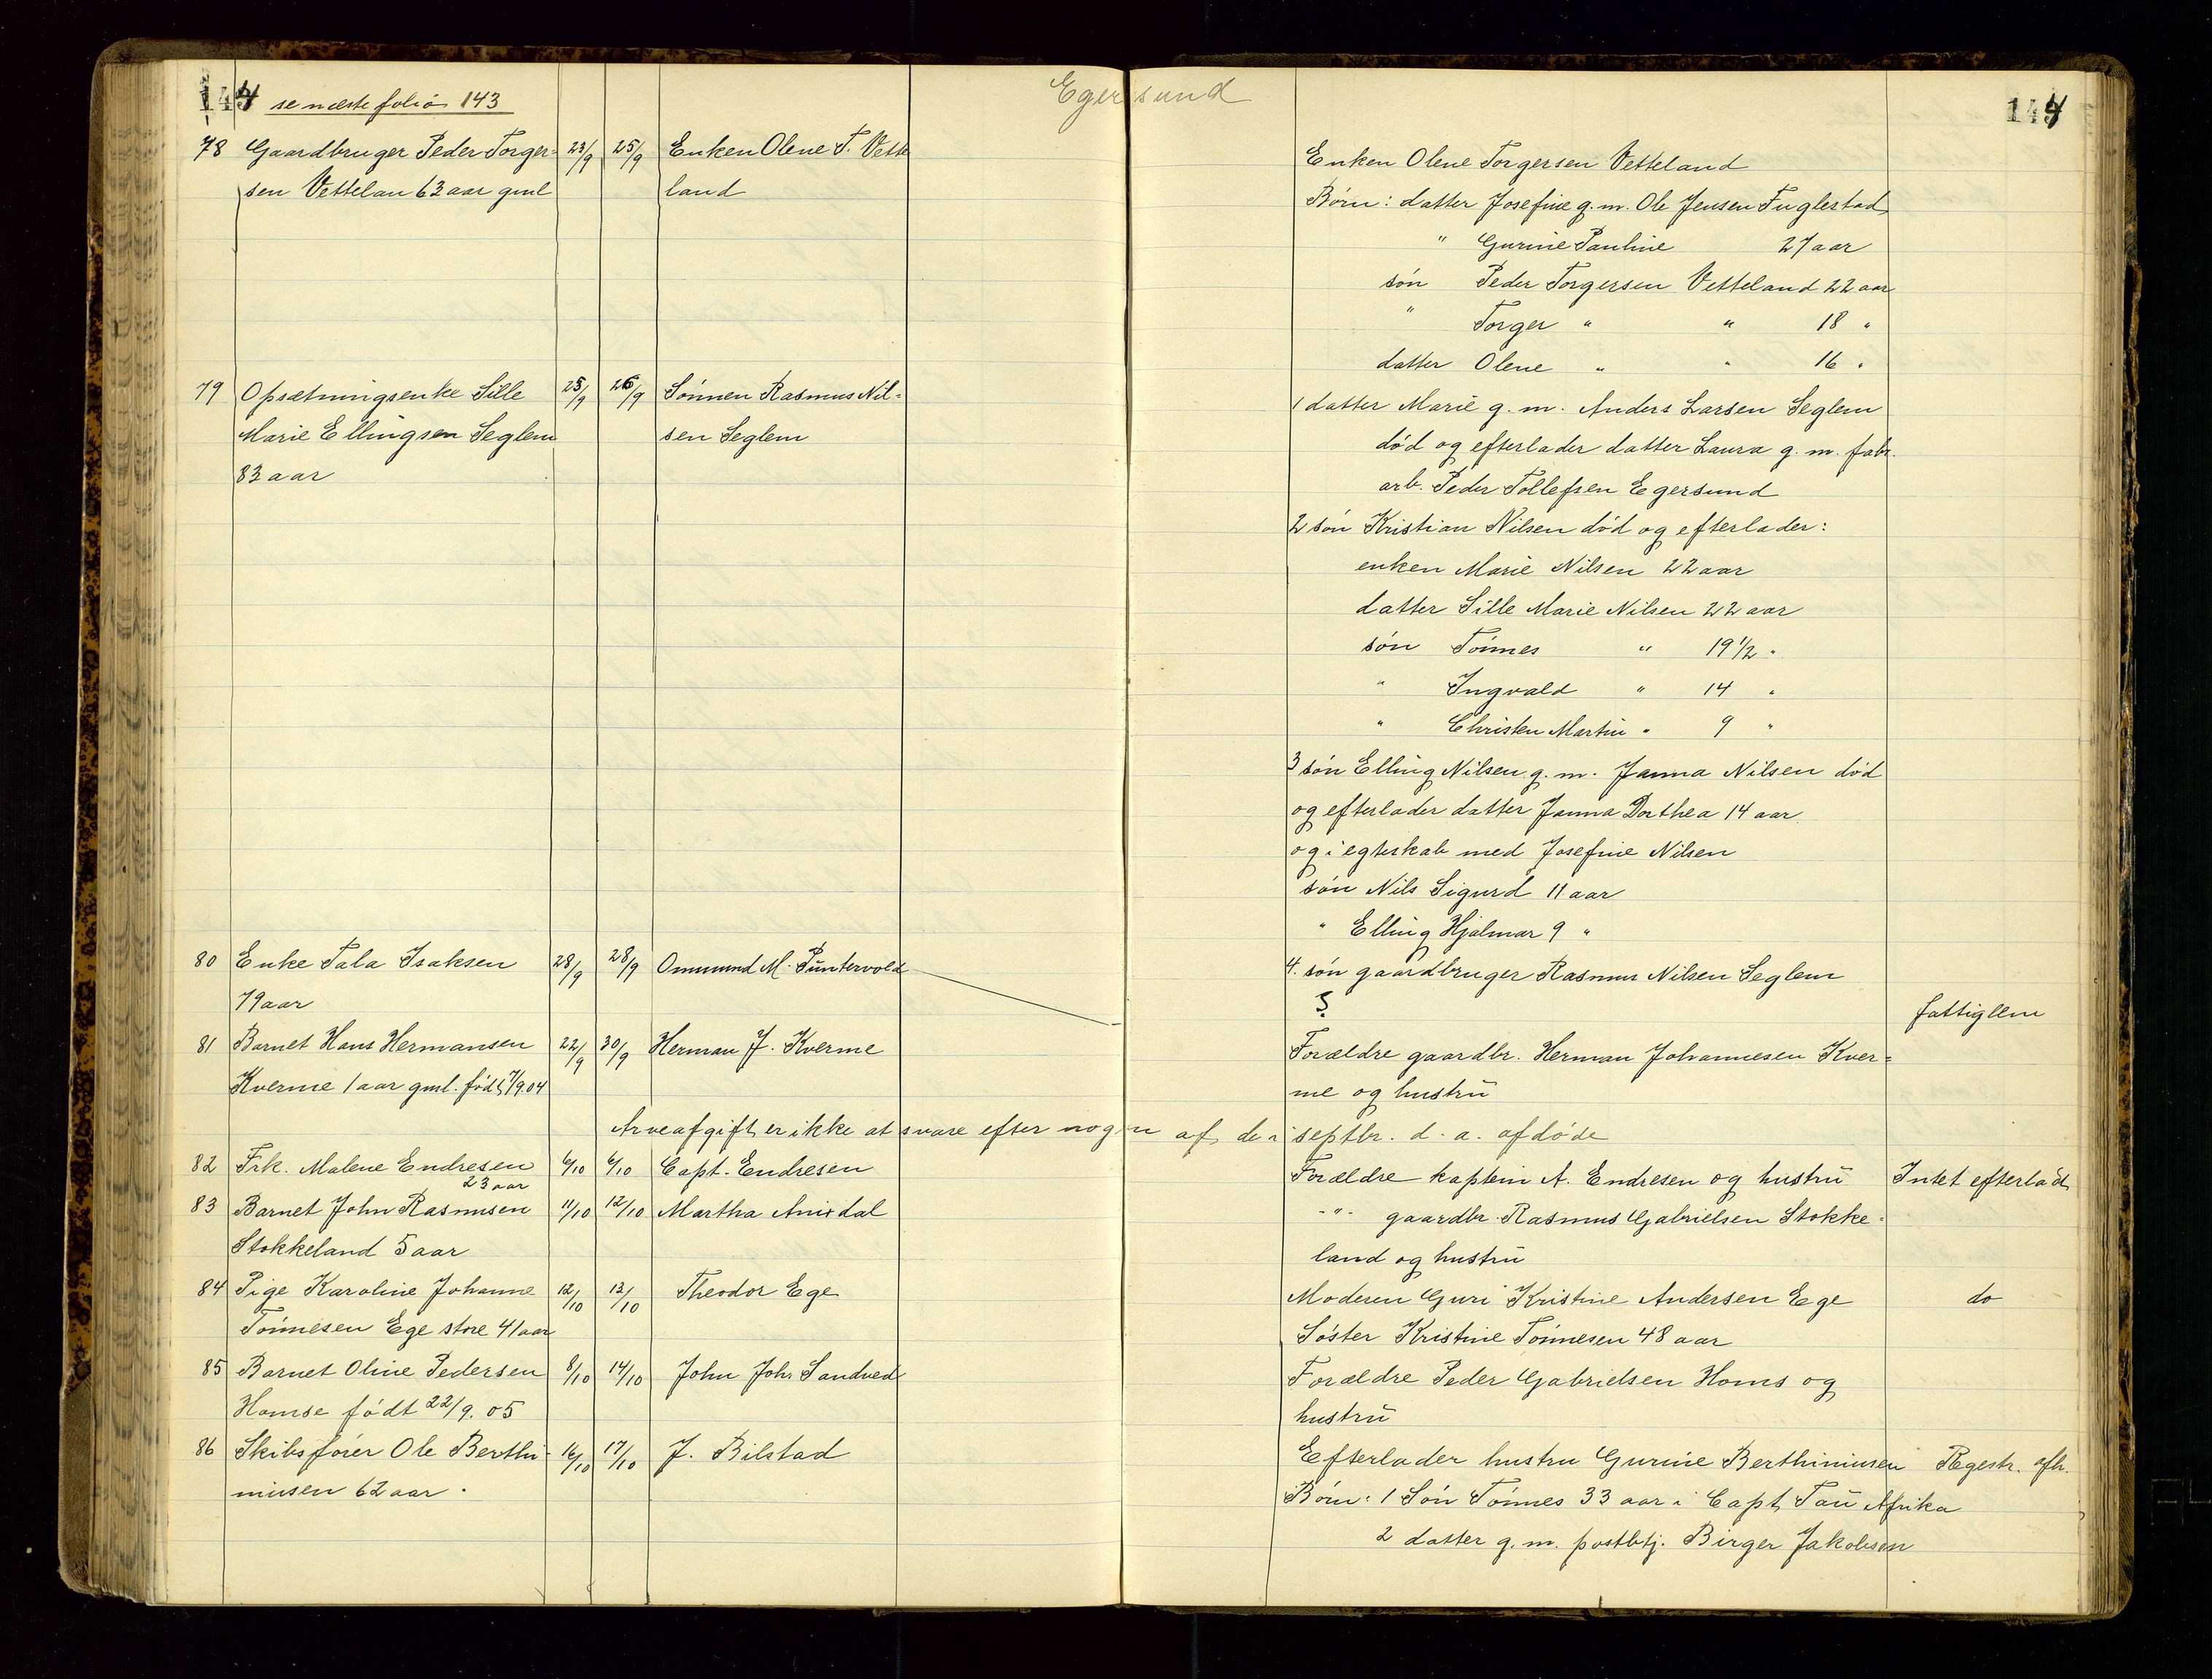 144 se næste folio 143
Egersund
144
78 Gaardbruger Peder Torger- 23/9 25/9 Enken Olene T. Vette
sen Vettelan 63 aar gml land
Enken Olene Torgersen Vetteland
Børn: datter Josefine g. m. Ole Jensen Fuglestad
" Gurine Pauline 27 aar
søn Peder Torgersen Vetteland 22 aar
" Torger " " 18 "
datter Olene " " 16 "
79 Opsætningsenke Sille 25/9 26/9 Sønnen Rasmus Nil=
Marie Ellingsen Seglem sen Seglem
83 aar
1 datter Marie g. m. Anders Larsen Seglem
død og efterlader datter Laura g. m. fabr.
arb. Peder Tollefsen Egersund
2 søn Kristian Nilsen død og efterlader:
enken Marie Nilsen 22 aar
datter Sille Marie Nilsen 22 aar
søn Tønnes " 19 1/2 "
" Ingvald " 14 "
" Christen Martin " 9 "
3 søn Elling Nilsen g. m. Janna Nilsen død
og efterlader datter Janna Dorthea 14 aar
og i egteskab med Josefine Nilsen
søn Nils Sigurd 11 aar
" Elling Hjalmar 9 "
4. søn gaardbruger Rasmus Nilsen Seglem
80 Enke Tala Isaksen 28/9 28/9 Ommund M. Puntervold
79 aar
? fattiglem
81 Barnet Hans Hermansen 22/9 30/9 Herman J. Kverme
Kverme 1 aar gml. født 7/9.04
Forældre gaardbr. Herman Johannesen Kver=
me og hustru
Arveafgift er ikke at svare efter nogen af de i septbr. d. a. afdøde
82 Frk. Malene Endresen 6/10 6/10 Capt. Endresen Forældre kaptein A. Endresen og hustru Intet efterladt
23 aar
83 Barnet John Rasmusen 11/10 12/10 Martha Anixdal " gaardbr. Rasmus Gabrielsen Stokke-
Stokkeland 5 aar land og hustru
84 Pige Karoline Johanne 12/10 13/10 Theodor Ege Moderen Guri Kristine Andersen Ege do
Tønnesen Ege store 41 aar Søster Kristine Tønnesen 48 aar
85 Barnet Oline Pedersen 8/10 14/10 John Johs Sandved Forældre Peder Gabrielsen Homs og
Homse født 22/9. 05 hustru
86 Skibsfører Ole Berthi- 16/10 17/10 J. Bilstad Efterlader hustru Gurine Berthiniusen Regestr. afh.
niusen 62 aar. Børn: 1 Søn Tønnes 33 aar i Capt Tau Afrika
2 datter g. m. postbtj. Birger Jakobsen